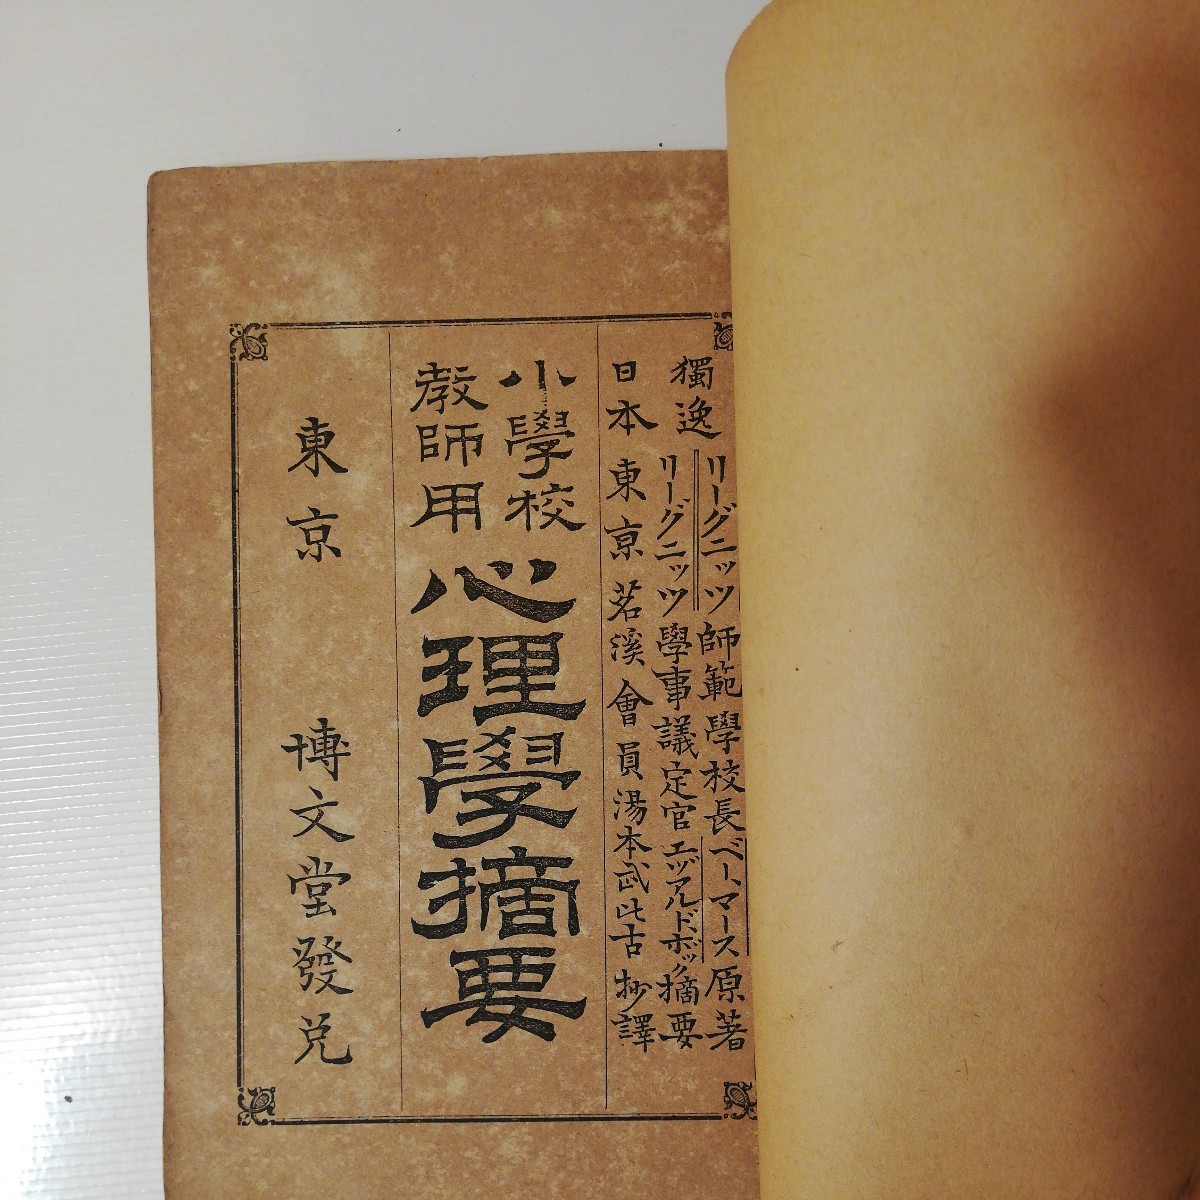 獨逸
リーグニッツ師範學校長ベーマース原著
リーグニッツ學事議定官エヅアルド、ボック摘要
日本東京茗溪會員湯本武比古抄譯
小學校
教師用
心理學摘要
東京 博文堂發兌